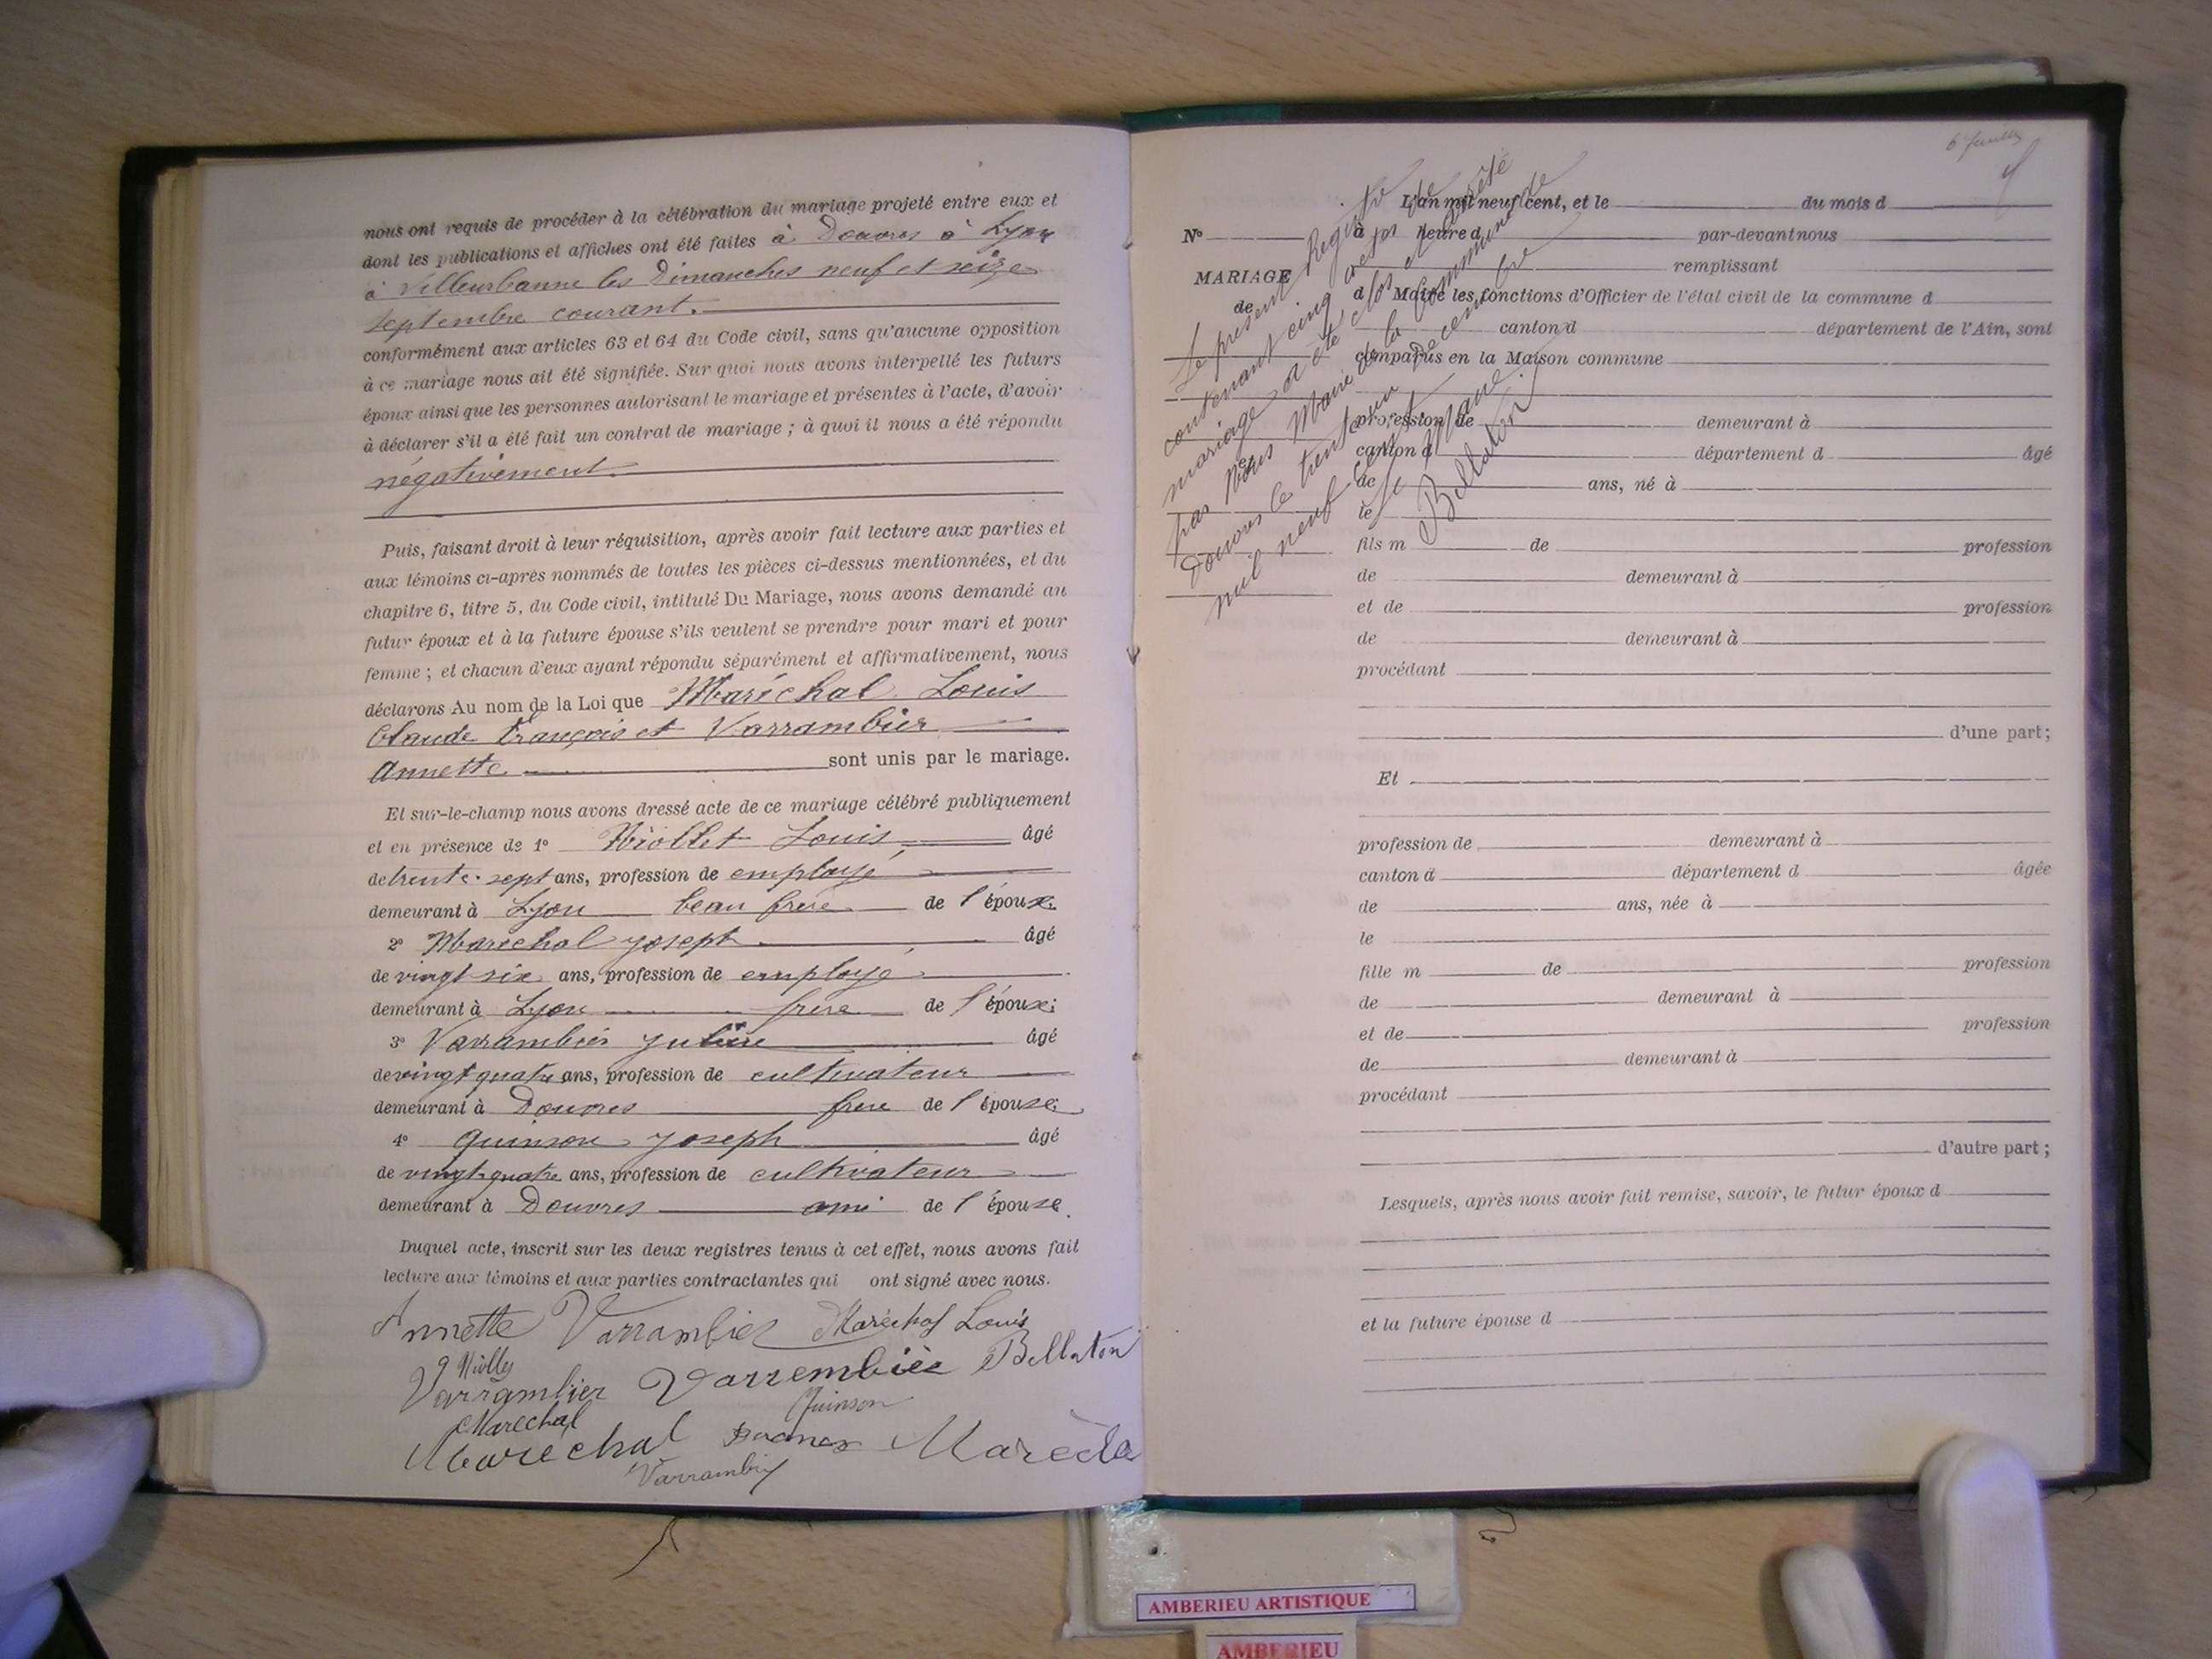 nous ont requis de procéder à la célébration du mariage projeté entre eux et
dont les publications et affiches ont été faites à Douvres à Lyon
à Villeurbanne les Dimanches neuf et seize
septembre courant.
conformément aux articles 63 et 64 du Code civil, sans qu'aucune opposition
à ce mariage nous ait été signifiée. Sur quoi nous avons interpellé les futurs
époux ainsi que les personnes autorisant le mariage et présentes à l'acte, d'avoir
à déclarer s'il a été fait un contrat de mariage ; à quoi il nous a été répondu
négativement
Puis, faisant droit à leur réquisition, après avoir fait lecture aux parties et
aux témoins ci-après nommés de toutes les pièces ci-dessus mentionnées, et du
chapitre 6, titre 5, du Code civil, intitulé Du Mariage, nous avons demandé au
futur époux et à la future épouse s'ils veulent se prendre pour mari et pour
femme ; et chacun d'eux ayant répondu séparément et affirmativement, nous
déclarons Au nom de la Loi que Maréchal Louis
Claude François et Varrambier
Annette sont unis par le mariage.
Et sur-le-champ nous avons dressé acte de ce mariage célébré publiquement
et en présence de 1° Louis âgé
de trente-sept ans, profession de employé
demeurant à Lyon beau frère de l'épouse
2° Maréchal Joseph âgé
de vingt six ans, profession de employé
demeurant à Lyon frère de l'époux;
3° Varrambier âgé
de vingt quatre ans, profession de cultivateur
demeurant à Douvres frère de l'épouse;
4° Quinson Joseph âgé
de vingt-quatre ans, profession de cultivateur
demeurant à Douvres ami de l'épouse.
Duquel acte, inscrit sur les deux registres tenus à cet effet, nous avons fait
lecture aux témoins et aux parties contractantes qui ont signé avec nous.
Annette Varrambier Maréchal Louis
Varrambier Varrembièr Bellaton
Quinson
Marechal
Marechal
Varrambier
6e feuillet
L'an mil neuf cent, et le du mois d
N° à heure d par-devant nous
MARIAGE remplissant
de d Maire les fonctions d'Officier de l'état civil de la commune d
canton d département de l'Ain, sont
comparus en la Maison commune
profession de demeurant à
canton d département d âgé
de ans, né à
le
fils m de profession
de demeurant à
et de profession
de demeurant à
procédant
d'une part;
Et
profession de demeurant à
canton d département d âgée
de ans, née à
le
fille m de profession
de demeurant à
et de profession
de demeurant à
procédant
d'autre part ;
Lesquels, après nous avoir fait remise, savoir, le futur époux d
et la future épouse d
Le présent Registre de
contenant cinq actes de
mariage a été clos et arrêté
par Nous Maire de la Commune de
Douvres le trente un Décembre
mil neuf cent.
le Maire
Bellaton
AMBERIEU ARTISTIQUE
AMBERIEU